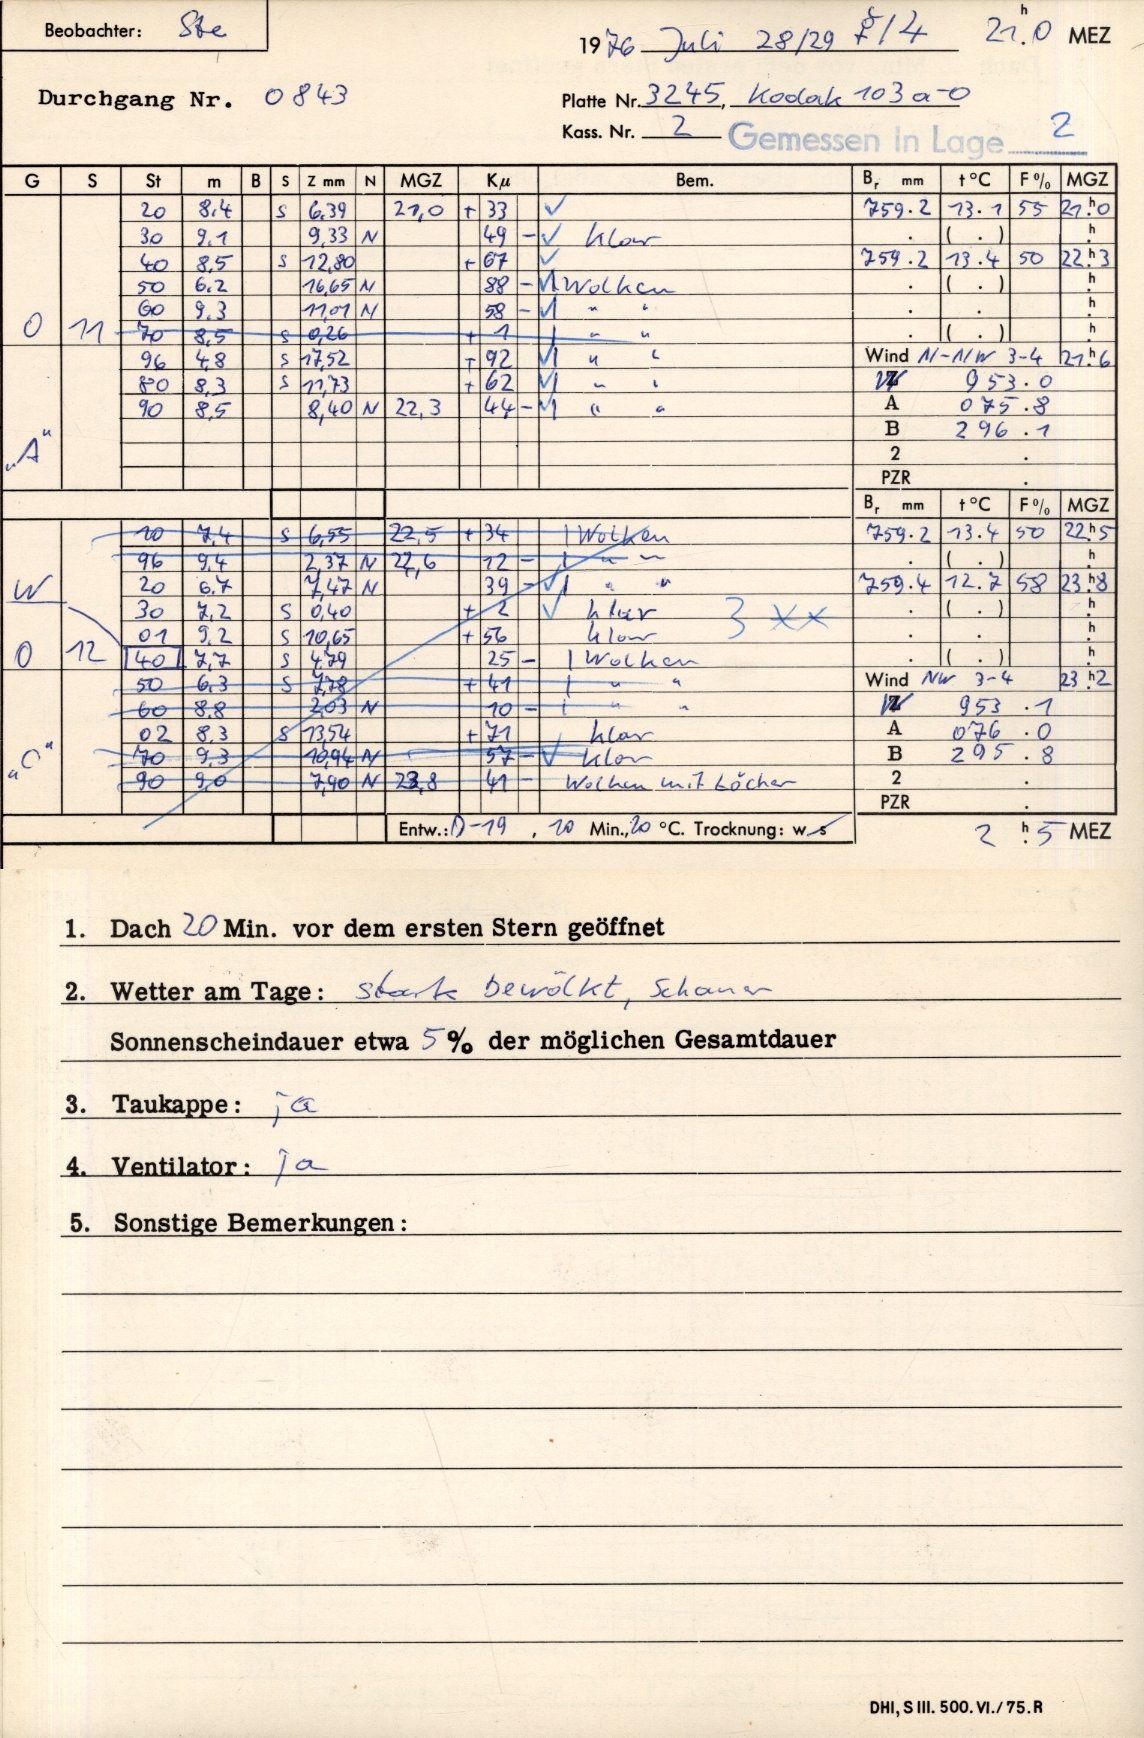 Beobachter: Ste
1976 Juli 28/29 /4 21.0 h MEZ
Durchgang Nr. 0843
Platte Nr. 3245, Kodak 103a-0
Kass. Nr. 2 Gemessen in Lage 2
G S St m B S Z mm N MGZ Kµ Bem. Br mm t °C F % MGZ
20 8.4 S 6,39 21,0 + 33 ✓ 759.2 13.1 55 21.h0
30 9.1 9,33 N 49 - ✓ klar . ( . ) .h
40 8,5 S 12,80 + 67 ✓ 759.2 13.4 50 22.h3
50 6.2 16,65 N 88 - ✓| Wolken . ( . ) .h
60 9.3 11,01 N 58 - ✓| " " . . .h
O 11 70 8,5 S 0,26 + 1 | " " . ( . ) .h
96 4,8 S 17,52 + 92 ✓| " " Wind N-NW 3-4 21.h6
80 8,3 S 11,73 + 62 ✓| " " Z 953.0
90 8,5 8,40 N 22,3 44 - ✓| " " A 075.8
"A" B 296.1
2 .
PZR .
Br mm t °C F % MGZ
10 7,4 S 6,55 22,5 + 34 | Wolken 759.2 13.4 50 22.h5
96 9,4 2,37 N 22,6 12 - | " " . ( . ) .h
W 20 6.7 7,47 N 39 - ✓| " " 759.4 12.7 58 23.h8
30 7,2 S 0,40 + 2 ✓ klar 3 xx . ( . ) .h
01 9,2 S 10,65 + 56 klar . . .h
O 12 40 7,7 S 4,79 25 - | Wolken . ( . ) .h
50 6,3 S 7,78 + 41 | " " Wind NW 3-4 23.h2
60 8.8 2,03 N 10 - | " " Z 953.1
02 8,3 S 13,54 + 71 klar A 076.0
"C" 70 9,3 10,94 N 57 - ✓ klar B 295.8
90 9,0 7,90 N 23,8 41 - Wolken mit Löcher 2 .
PZR .
Entw.: D-19, 10 Min., 20 °C. Trocknung: w s 2 h.5 MEZ
1. Dach 20 Min. vor dem ersten Stern geöffnet
2. Wetter am Tage: stark bewölkt, Schauer
Sonnenscheindauer etwa 5 % der möglichen Gesamtdauer
3. Taukappe: ja
4. Ventilator: ja
5. Sonstige Bemerkungen:
DHI, S III. 500. VI./75. R